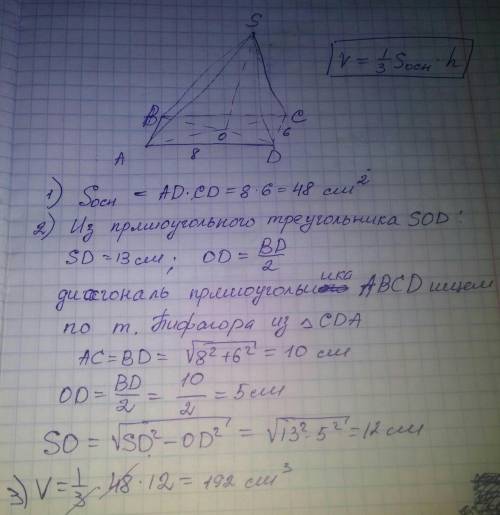 S
V = 1/3 Sосн · h
B
C
O
6
A
8
D
1) Sосн = AD·CD = 8·6 = 48 см²
2) Из прямоугольного треугольника SOD:
SD = 13 см; OD = BD/2
диагональ прямоугольника ABCD ищем
по т. Пифагора из △CDA
AC = BD = √(8² + 6²) = 10 см
OD = BD/2 = 10/2 = 5 см
SO = √(SD² − OD²) = √(13² − 5²) = 12 см
3) V = 1/3 · 48 · 12 = 192 см³